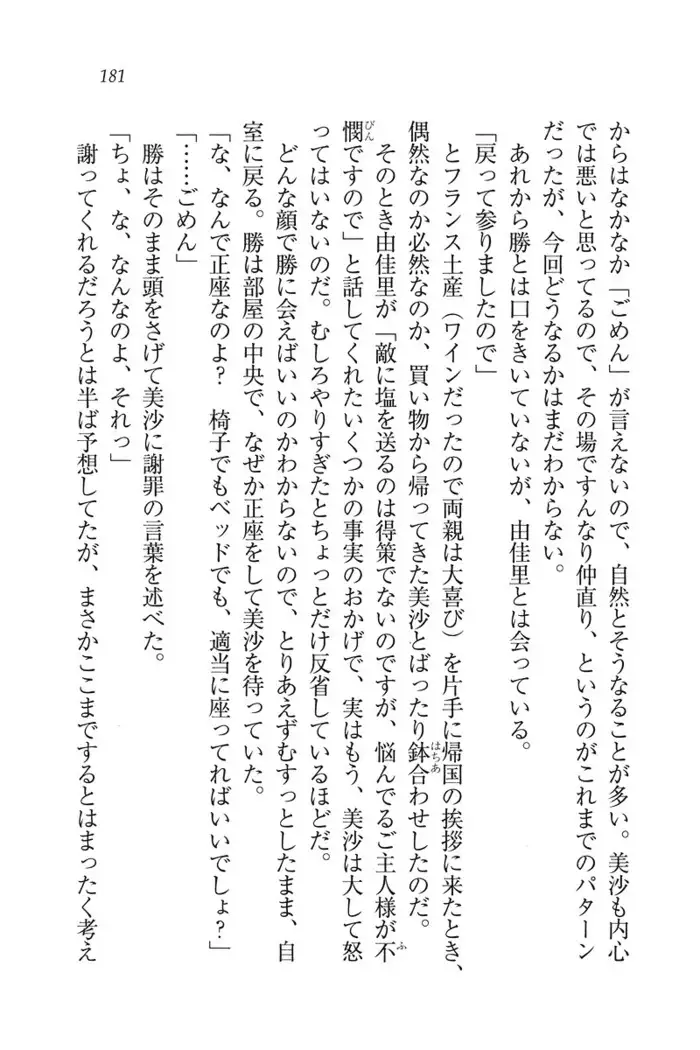 181
からはなかなか「ごめん」が言えないので、自然とそうなることが多い。美沙も内心
では悪いと思ってるので、その場ですんなり仲直り、というのがこれまでのパターン
だったが、今回どうなるかはまだわからない。
あれから勝とは口をきいていないが、由佳里とは会っている。
「戻って参りましたので」
とフランス土産（ワインだったので両親は大喜び）を片手に帰国の挨拶に来たとき、
偶然なのか必然なのか、買い物から帰ってきた美沙とばったり鉢合わせしたのだ。
そのとき由佳里が「敵に塩を送るのは得策でないのですが、悩んでるご主人様が不
憫ですので」と話してくれたいくつかの事実のおかげで、実はもう、美沙は大して怒
ってはいないのだ。むしろやりすぎたとちょっとだけ反省しているほどだ。
どんな顔で勝に会えばいいのかわからないので、とりあえずむすっとしたまま、自
室に戻る。勝は部屋の中央で、なぜか正座をして美沙を待っていた。
「な、なんで正座なのよ？　椅子でもベッドでも、適当に座ってればいいでしょ？」
「……ごめん」
勝はそのまま頭をさげて美沙に謝罪の言葉を述べた。
「ちょ、な、なんなのよ、それっ」
謝ってくれるだろうとは半ば予想してたが、まさかここまでするとはまったく考え